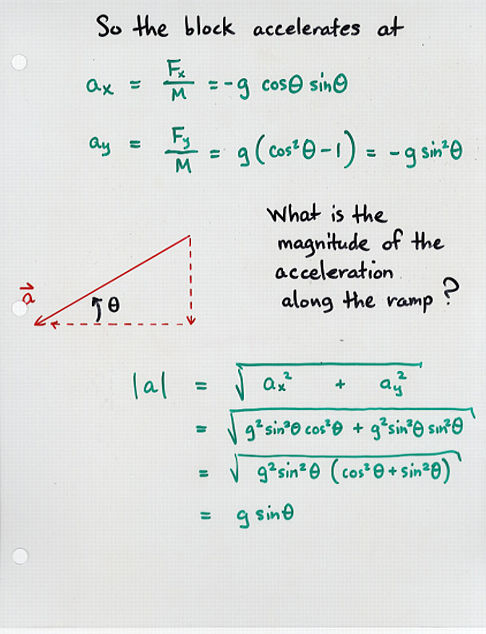 So the block accelerates at
ax = Fx/M = -g cosθ sinθ
ay = Fy/M = g(cos²θ-1) = -g sin²θ
What is the
magnitude of the
acceleration
along the ramp?
a⃗
θ
|a| = √(ax² + ay²)
= √(g²sin²θ cos²θ + g²sin²θ sin²θ)
= √(g²sin²θ (cos²θ+sin²θ))
= g sinθ